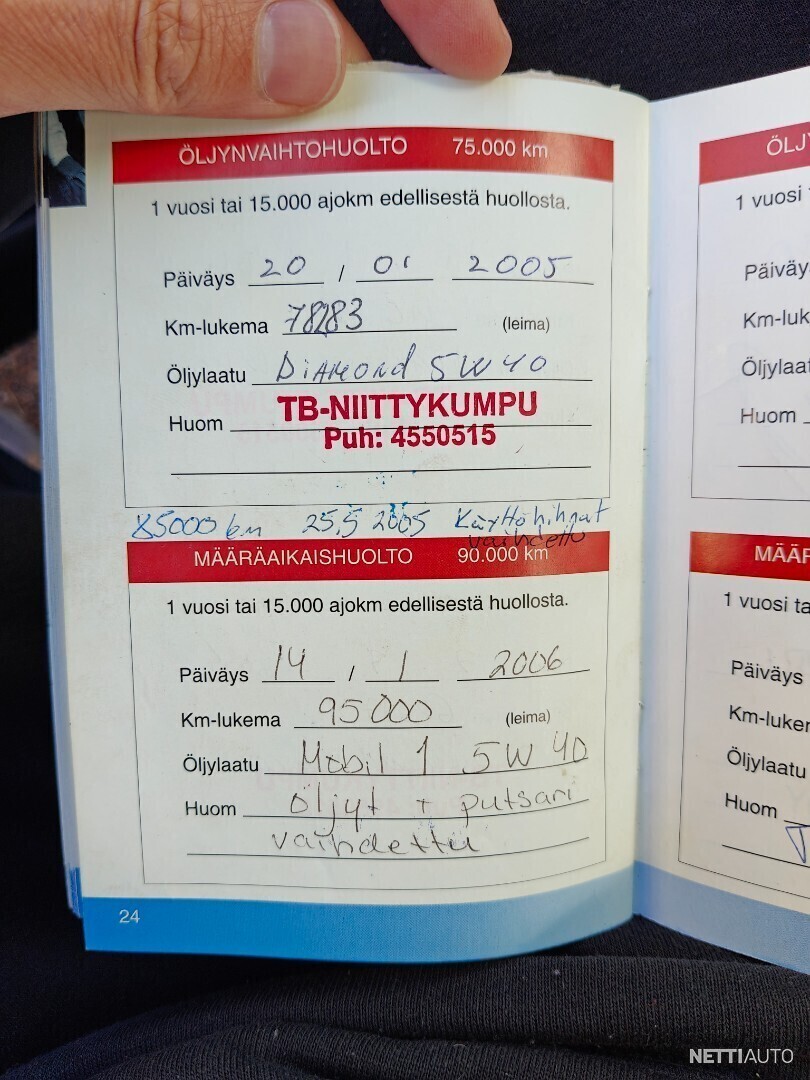 ÖLJYNVAIHTOHUOLTO 75.000 km
1 vuosi tai 15.000 ajokm edellisestä huollosta.
Päiväys 20 / 01 2005
Km-lukema 78283 (leima)
Öljylaatu Diamond 5W40
Huom TB-NIITTYKUMPU
Puh: 4550515
85000 km 25.5 2005 Käyttöhihnat
vaihdettu
MÄÄRÄAIKAISHUOLTO 90.000 km
1 vuosi tai 15.000 ajokm edellisestä huollosta.
Päiväys 14 / 1 2006
Km-lukema 95000 (leima)
Öljylaatu Mobil 1 5W 40
Huom öljyt + putsari
vaihdettu
24
ÖLJ
1 vuosi
Päiväy
Km-luk
Öljylaat
Huom
MÄÄR
1 vuosi ta
Päiväys
Km-luker
Öljylaatu
Huom
NETTIAUTO